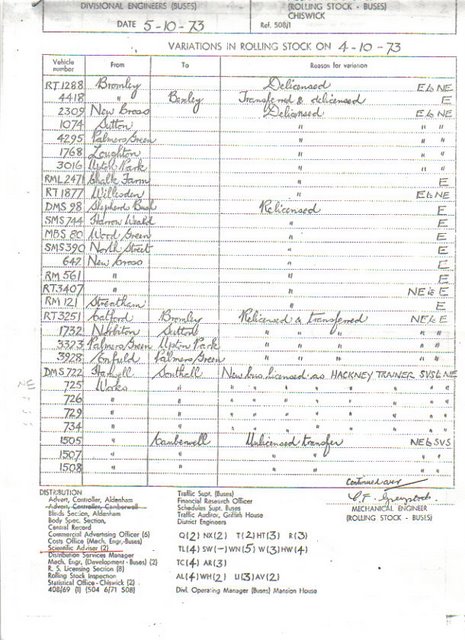 DIVISIONAL ENGINEERS (BUSES) (ROLLING STOCK - BUSES)
CHISWICK
DATE 5-10-73 Ref. 508/1
VARIATIONS IN ROLLING STOCK ON 4-10-73
Vehicle number From To Reason for variation
RT1288 Bromley Delicensed E to NE
4418 " Bexley Transferred & delicensed E
2309 New Cross Delicensed E to NE
1074 Sutton " " "
4295 Palmers Green " " "
1768 Loughton " " "
3016 Upton Park " " "
RML2471 Chalk Farm " E
RT1877 Willesden " E to NE
DMS 98 Shepherd Bush Relicensed E
SMS 744 Harrow Weald " E
MBS 80 Wood Green " E
SMS 390 North Street " E
642 New Cross " E
RM 561 " " E
RT3407 " " NE to E
RM 121 Streatham " E
RT3251 Catford Bromley Relicensed & transferred NE to E
1732 Norbiton Sutton " " " "
3323 Palmers Green Upton Park " " " "
3928 Enfield Palmers Green " " " "
DMS 722 Southall New bus licensed as HACKNEY TRAINER SVS NE
725 Works " " " " " " "
726 " " " " " " " "
729 " " " " " " " "
734 " " " " " " " "
1505 " Camberwell Unlicensed transfer NE to SVS
1507 " " " " "
1508 " " " " "
Continued over
DISTRIBUTION
Advert. Controller, Aldenham
Advert. Controller, Camberwell
Blinds Section, Aldenham
Body Spec. Section,
Central Record
Commercial Advertising Officer (6)
Costs Office (Mech. Engr.-Buses)
Scientific Adviser (2)
Distribution Services Manager
Mech. Engr. (Development - Buses) (2)
R. S. Licensing Section (8)
Rolling Stock Inspection
Statistical Office - Chiswick (2)
408/69 (1) (504 6/71 508)
Traffic Supt. (Buses)
Financial Research Officer
Schedules Supt. Buses
Traffic Auditor, Griffith House
District Engineers
Q(2) NX(2) T(2) HT(3) R(3)
TL(4) SW(-) WN(5) W(3) HW(4)
TC(4) AR(3)
AL(4) WH(2) U(3) AV(2)
Divl. Operating Manager (Buses) Mansion House
MECHANICAL ENGINEER
(ROLLING STOCK - BUSES)